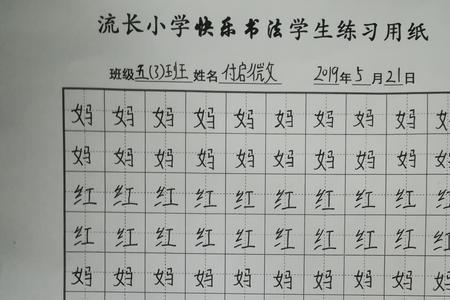 流长小学快乐书法学生练习用纸
班级五(3)班 姓名付启微 2019年5月21日
妈妈妈妈妈妈妈妈妈妈
妈妈妈妈妈妈妈妈妈妈
红红红红红红红红红红
红红红红红红红红红红
妈妈妈妈妈妈妈妈妈妈